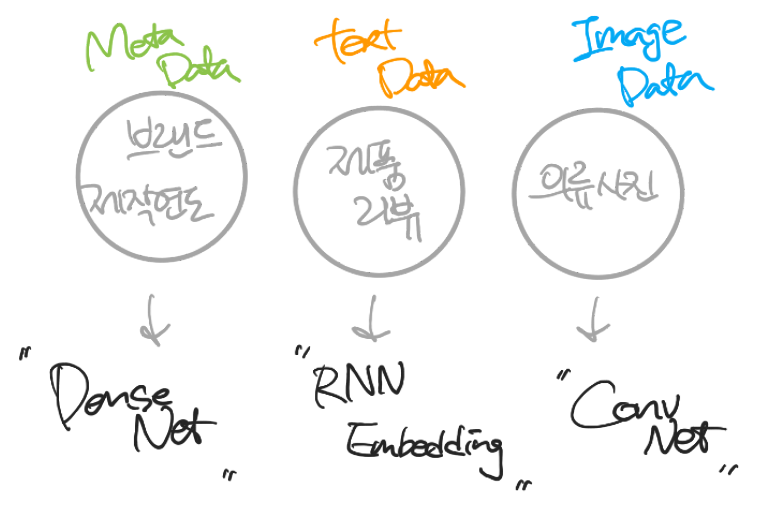 Meta
Data
브랜드
제작연도
"Dense
Net"
text
Data
제품
리뷰
"RNN
Embedding"
Image
Data
의류사진
"Conv
Net"